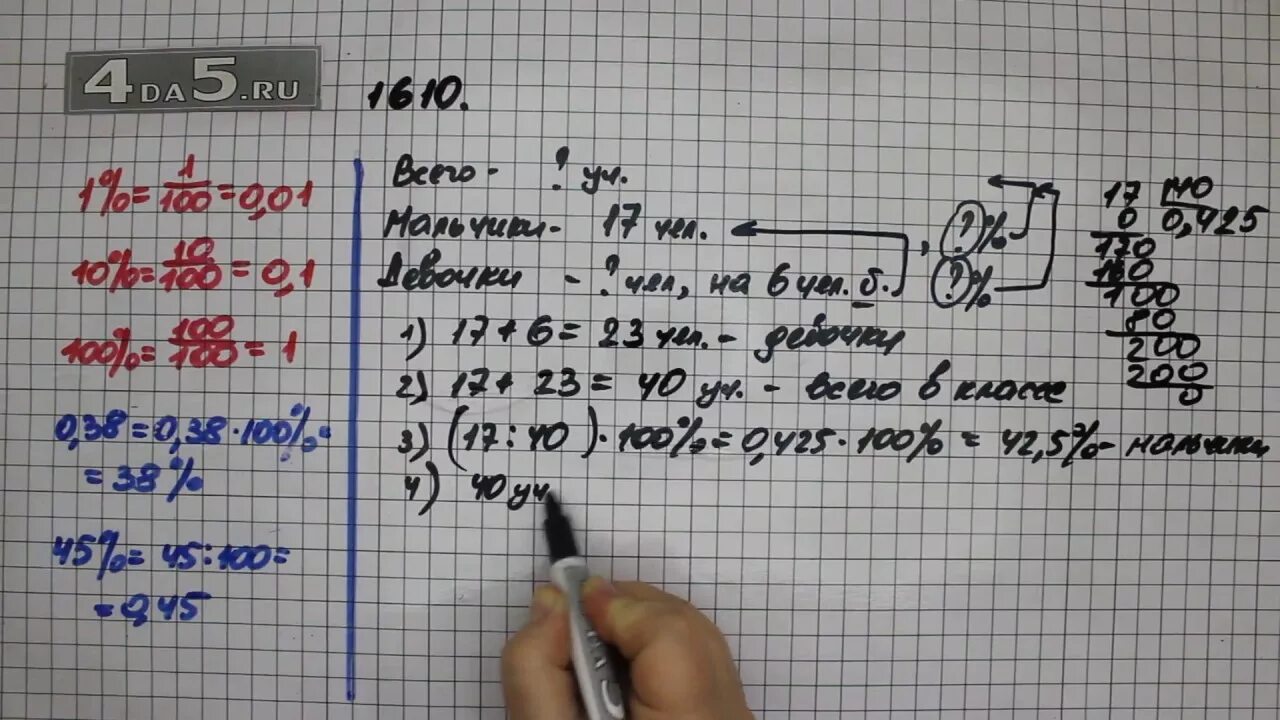 4DA5.RU
1610.
1% = 1/100 = 0,01
10% = 10/100 = 0,1
100% = 100/100 = 1
0,38 = 0,38 · 100% =
= 38%
45% = 45 : 100 =
= 0,45
Всего - ? уч.
Мальчики - 17 чел. , ?%
Девочки - ? чел, на 6 чел. б. ?%
1) 17 + 6 = 23 чел. - девочки
2) 17 + 23 = 40 уч. - всего в классе
3) (17 : 40) · 100% = 0,425 · 100% = 42,5% - мальчики
4) 40 уч
17 40
0 0,425
170
160
100
80
200
200
0